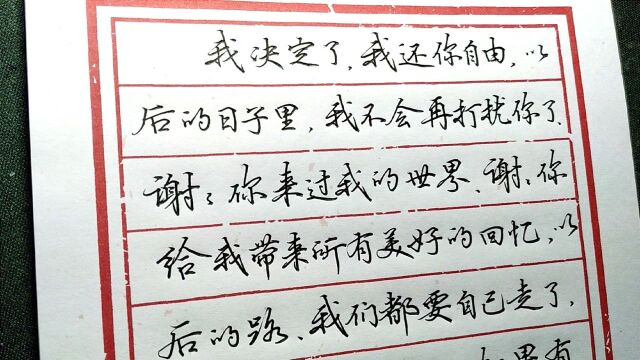 我决定了，我还你自由，以
后的日子里，我不会再打扰你了、
谢：你来过我的世界、谢：你
给我带来所有美好的回忆，以
后的路、我们都要自己走了，
如果有